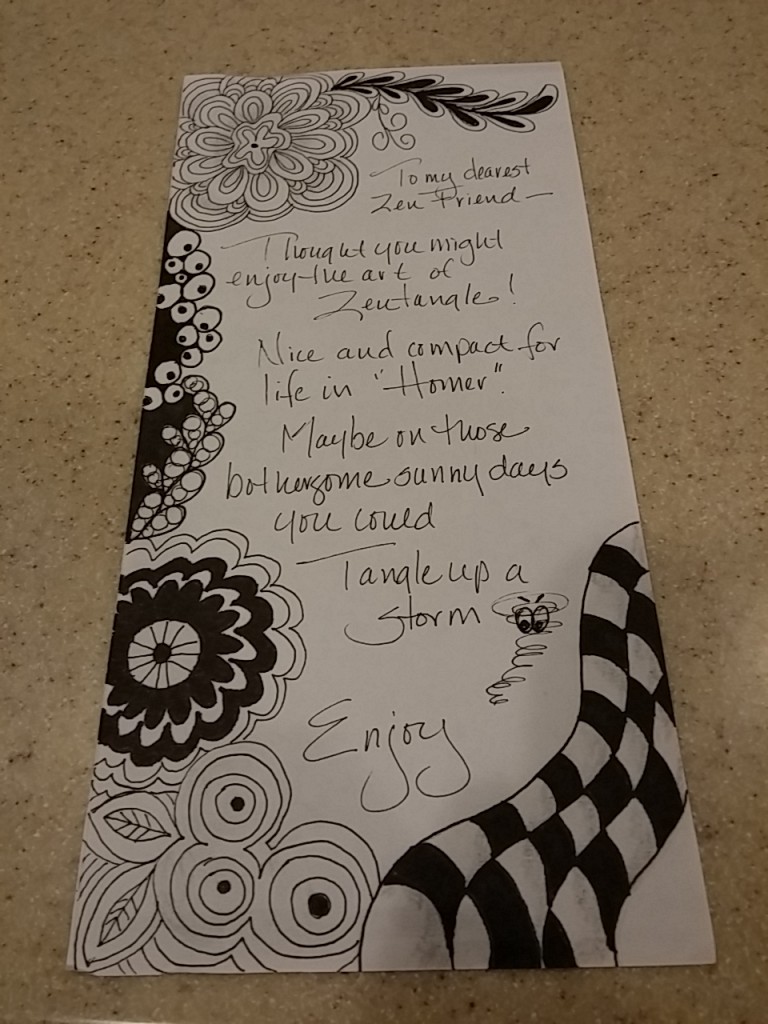 To my dearest
Zen Friend —
Thought you might
enjoy the art of
Zentangle!
Nice and compact for
life in "Homer".
Maybe on those
bothersome sunny days
you could
Tangle up a
storm
Enjoy